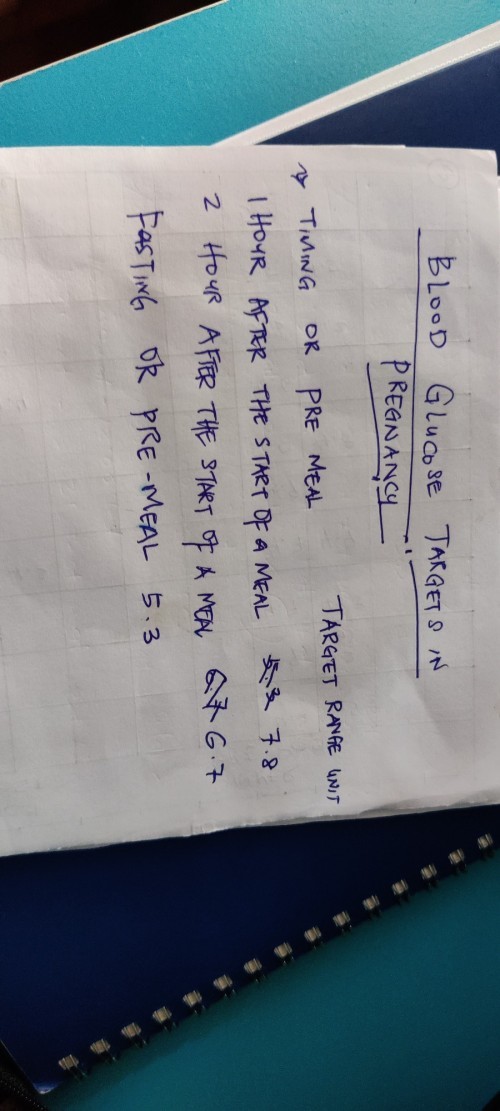 BLOOD GLUCOSE TARGETS IN
PREGNANCY
TIMING OR PRE MEAL TARGET RANGE UNIT
1 HOUR AFTER THE START OF A MEAL 5.3 7.8
2 HOUR AFTER THE START OF A MEAL 6.7 6.7
FASTING OR PRE-MEAL 5.3